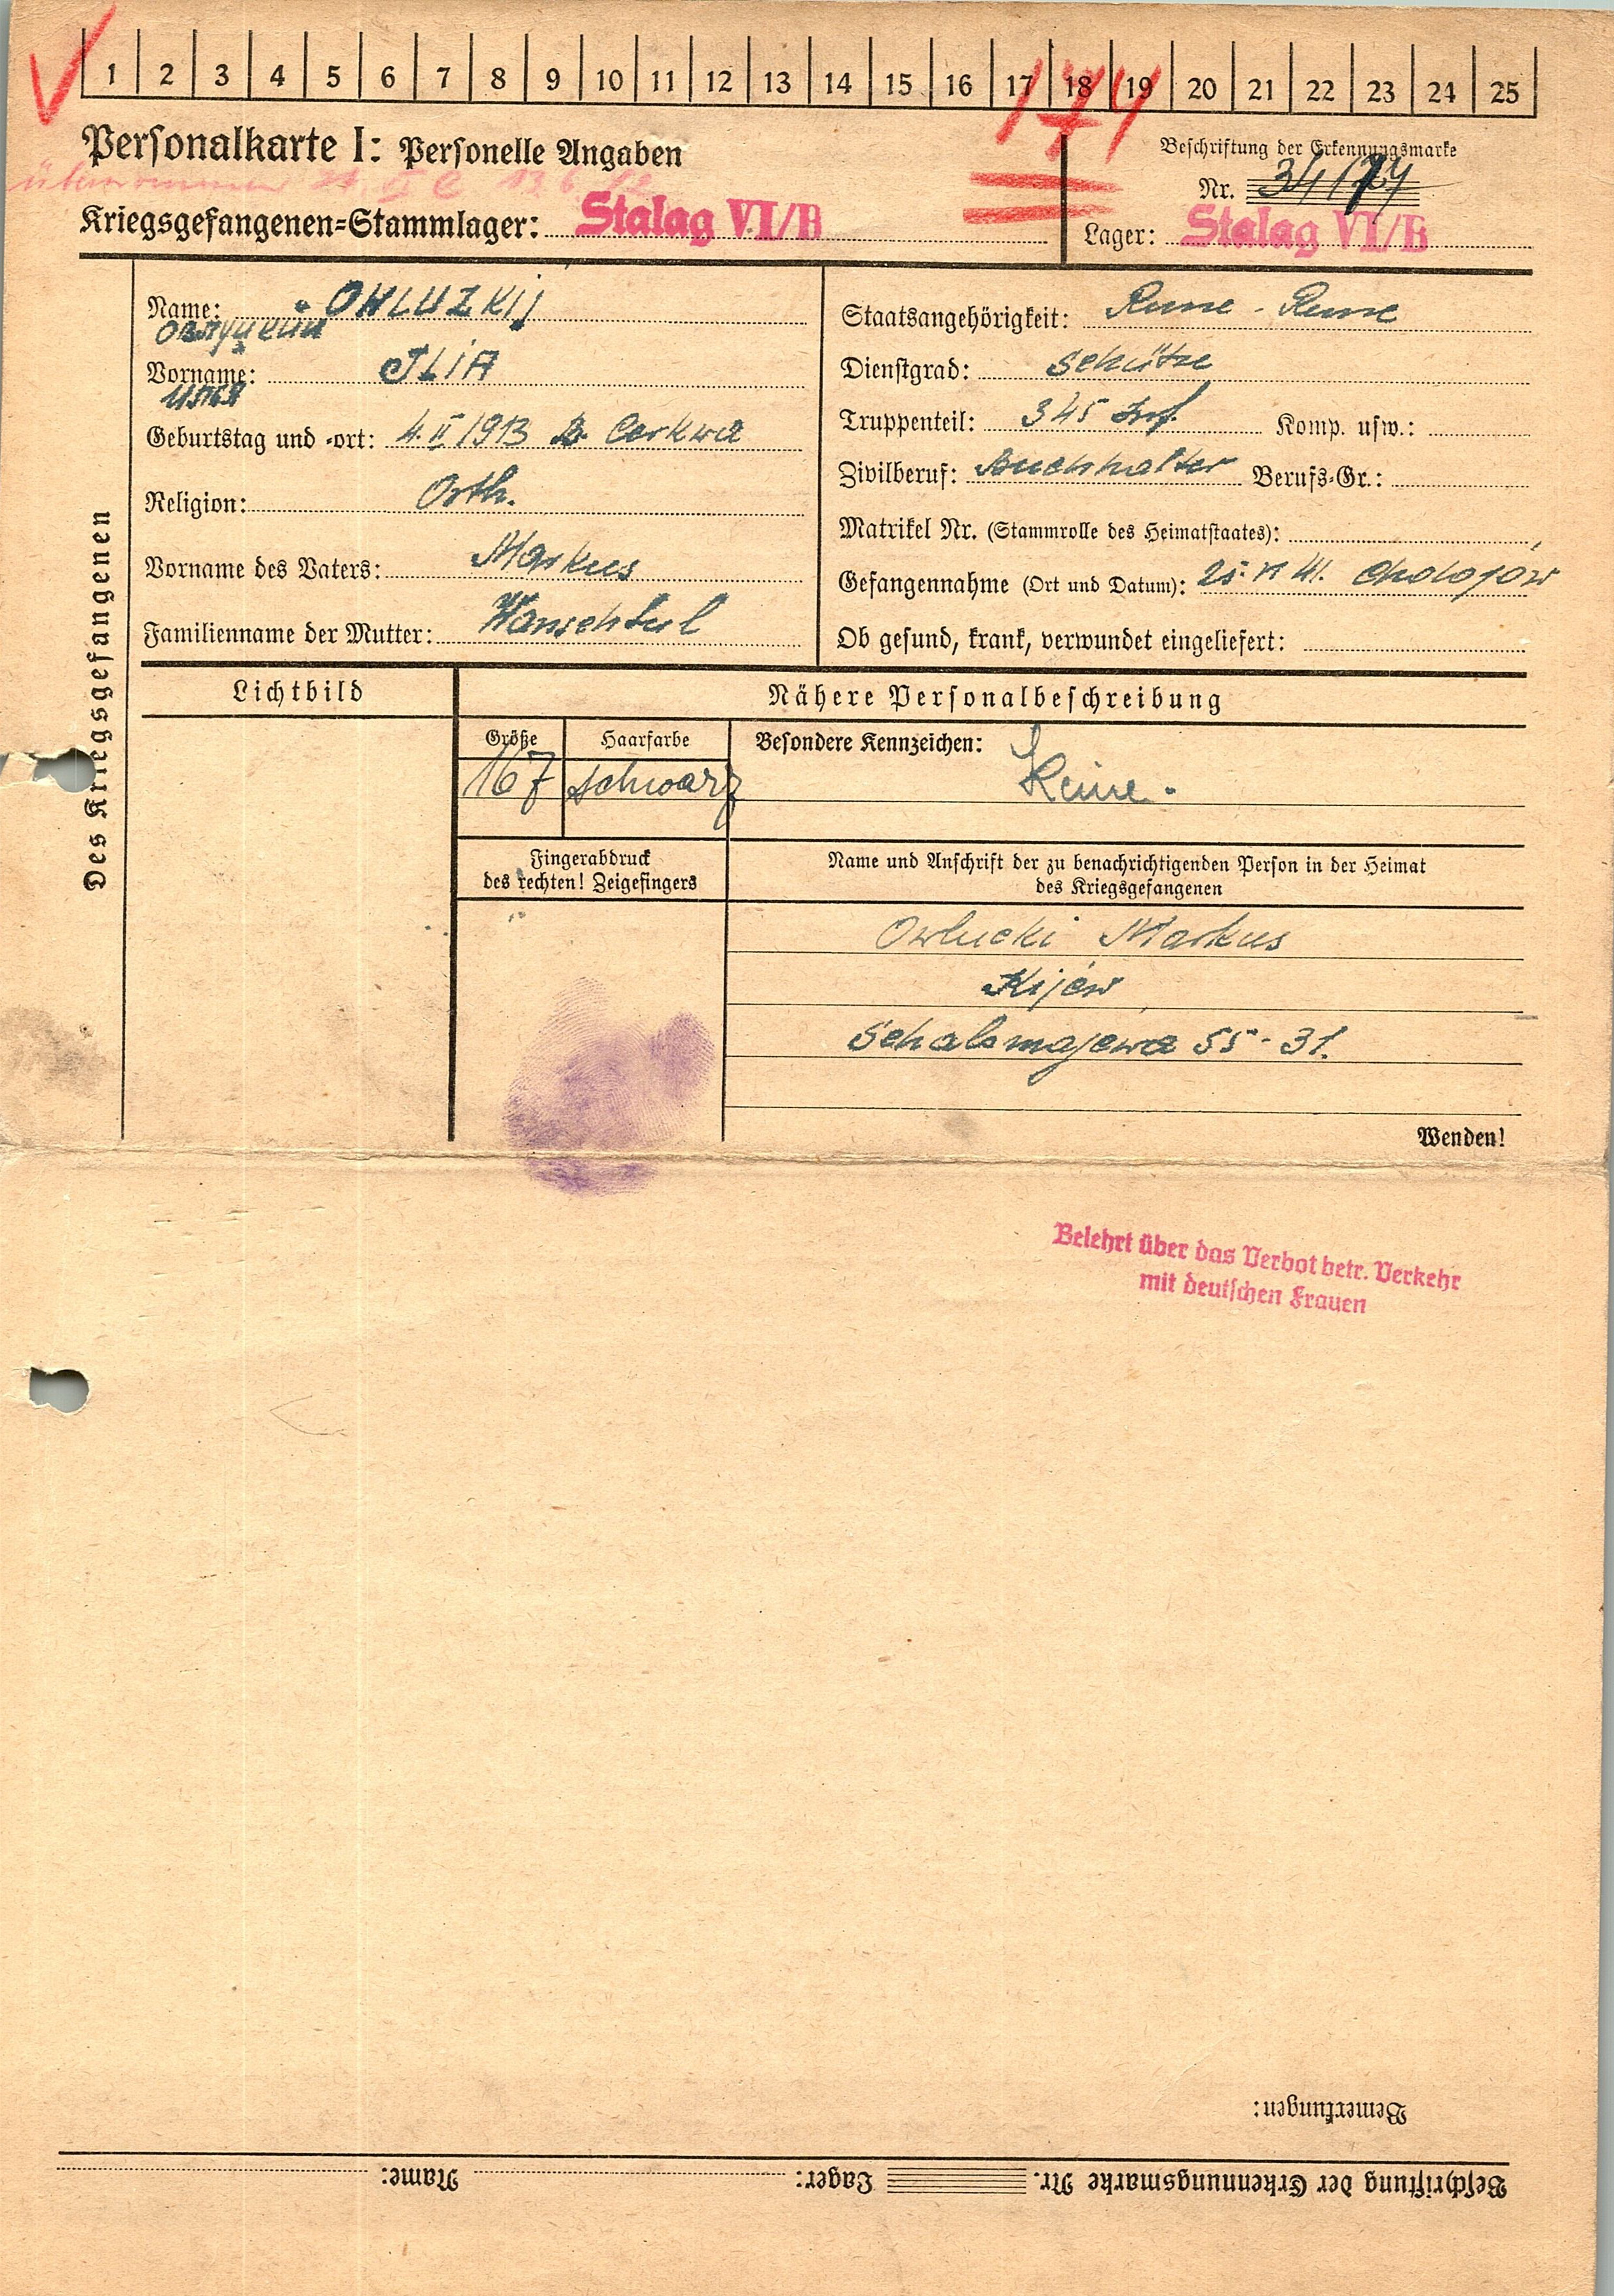 1 2 3 4 5 6 7 8 9 10 11 12 13 14 15 16 17 18 19 20 21 22 23 24 25
174
Personalkarte I: Personelle Angaben
Beschriftung der Erkennungsmarke
Nr. 34174
Kriegsgefangenen=Stammlager: Stalag VI/B
Lager: Stalag VI/B
Des Kriegsgefangenen
Name: OWLUZKIJ
Овлуцкий
Vorname: JLIA
Илья
Geburtstag und -ort: 4. II 1913 B. Cerkwa
Religion: Orth.
Vorname des Vaters: Markus
Familienname der Mutter:
Staatsangehörigkeit: Russe - Russe
Dienstgrad: Schütze
Truppenteil: 345 Inf. Komp. usw.:
Zivilberuf: Buchhalter Berufs=Gr.:
Matrikel Nr. (Stammrolle des Heimatstaates):
Gefangennahme (Ort und Datum): 25. VI 41. Cholojow
Ob gesund, krank, verwundet eingeliefert:
Lichtbild
Nähere Personalbeschreibung
Größe Haarfarbe Besondere Kennzeichen:
167 schwarz Keine.
Fingerabdruck
des rechten! Zeigefingers
Name und Anschrift der zu benachrichtigenden Person in der Heimat
des Kriegsgefangenen
Owlucki Markus
Kijew
55-31.
Wenden!
Belehrt über das Verbot betr. Verkehr
mit deutschen Frauen
Bemerkungen:
Beschriftung der Erkennungsmarke Nr. Lager: Name: